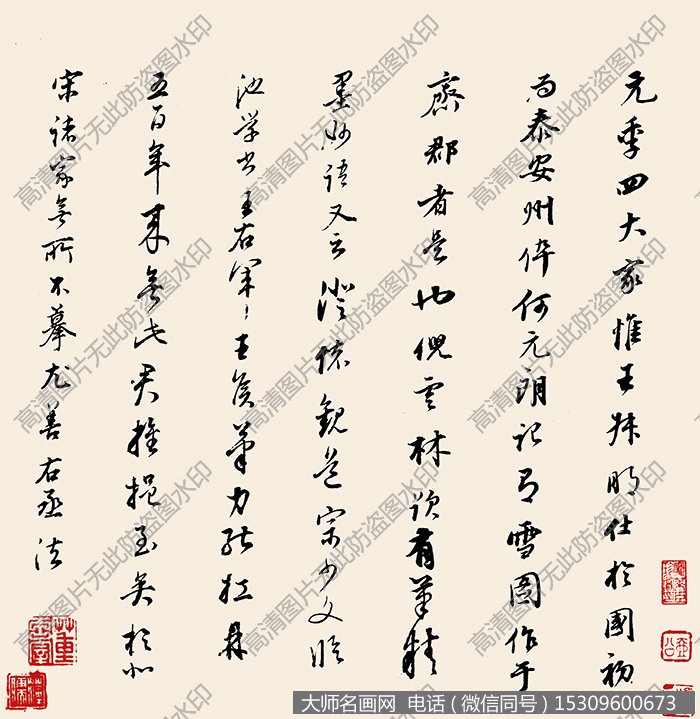 元季四大家惟王叔明仕於國初
為泰安州倅何元朗記有雪圖作于
齋郡者是也倪雲林跋有筆精
墨妙語又云澄懷觀道宗少文臨
池學書王右軍〻王侯筆力能扛鼎
五百年來無此君推挹至矣於北
宋諸家無所不摹尤善右丞法
大师名画网 电话（微信同号）15309600673
高清图片无此防盗图水印